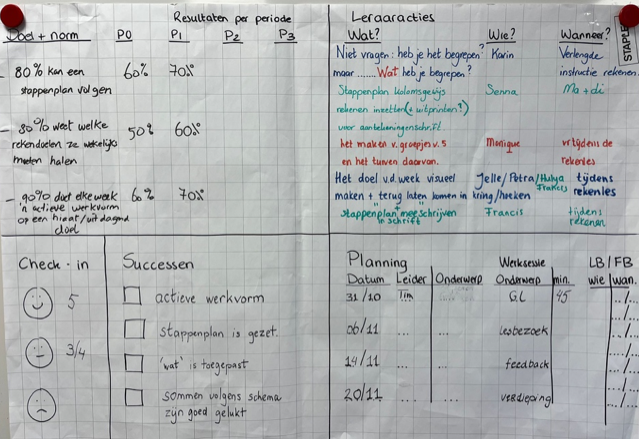 Resultaten per periode
Doel + norm P0 P1 P2 P3
- 80% kan een 60% 70%
stappenplan volgen
- 80% weet welke 50% 60%
rekendoelen ze wekelijks
moeten halen
- 90% doet elke week 60% 70%
'n actieve werkvorm
op een hiaat/uitdagend
doel
Leraaracties
Wat? Wie? Wanneer?
Niet vragen: heb je het begrepen? Karin Verlengde
maar ....... Wat heb je begrepen? instructie rekenen
Stappenplan kolomsgewijs Senna Ma + di
rekenen inzetten (+ uitprinten?)
voor aantekeningenschrift.
het maken v. groepjes v. 5 Monique vrijtijdens de
en het turven daarvan. rekenles
Het doel v.d. week visueel Jelle/Petra/Hulya tijdens
maken + terug laten komen in kring/hoeken Francis rekenles
"stappenplan" meeschrijven Francis tijdens
in schrift rekenen
STAPLE
Check-in
5
3/4
Successen
actieve werkvorm
stappenplan is gezet.
'wat' is toegepast
sommen volgens schema
zijn goed gelukt
Planning Werksessie LB/FB
Datum Leider Onderwerp Onderwerp min. wie wan.
31/10 Tim G.L 45 ../..
06/11 ... ... Lesbezoek
14/11 ... ... feedback
20/11 ... ... verdieping